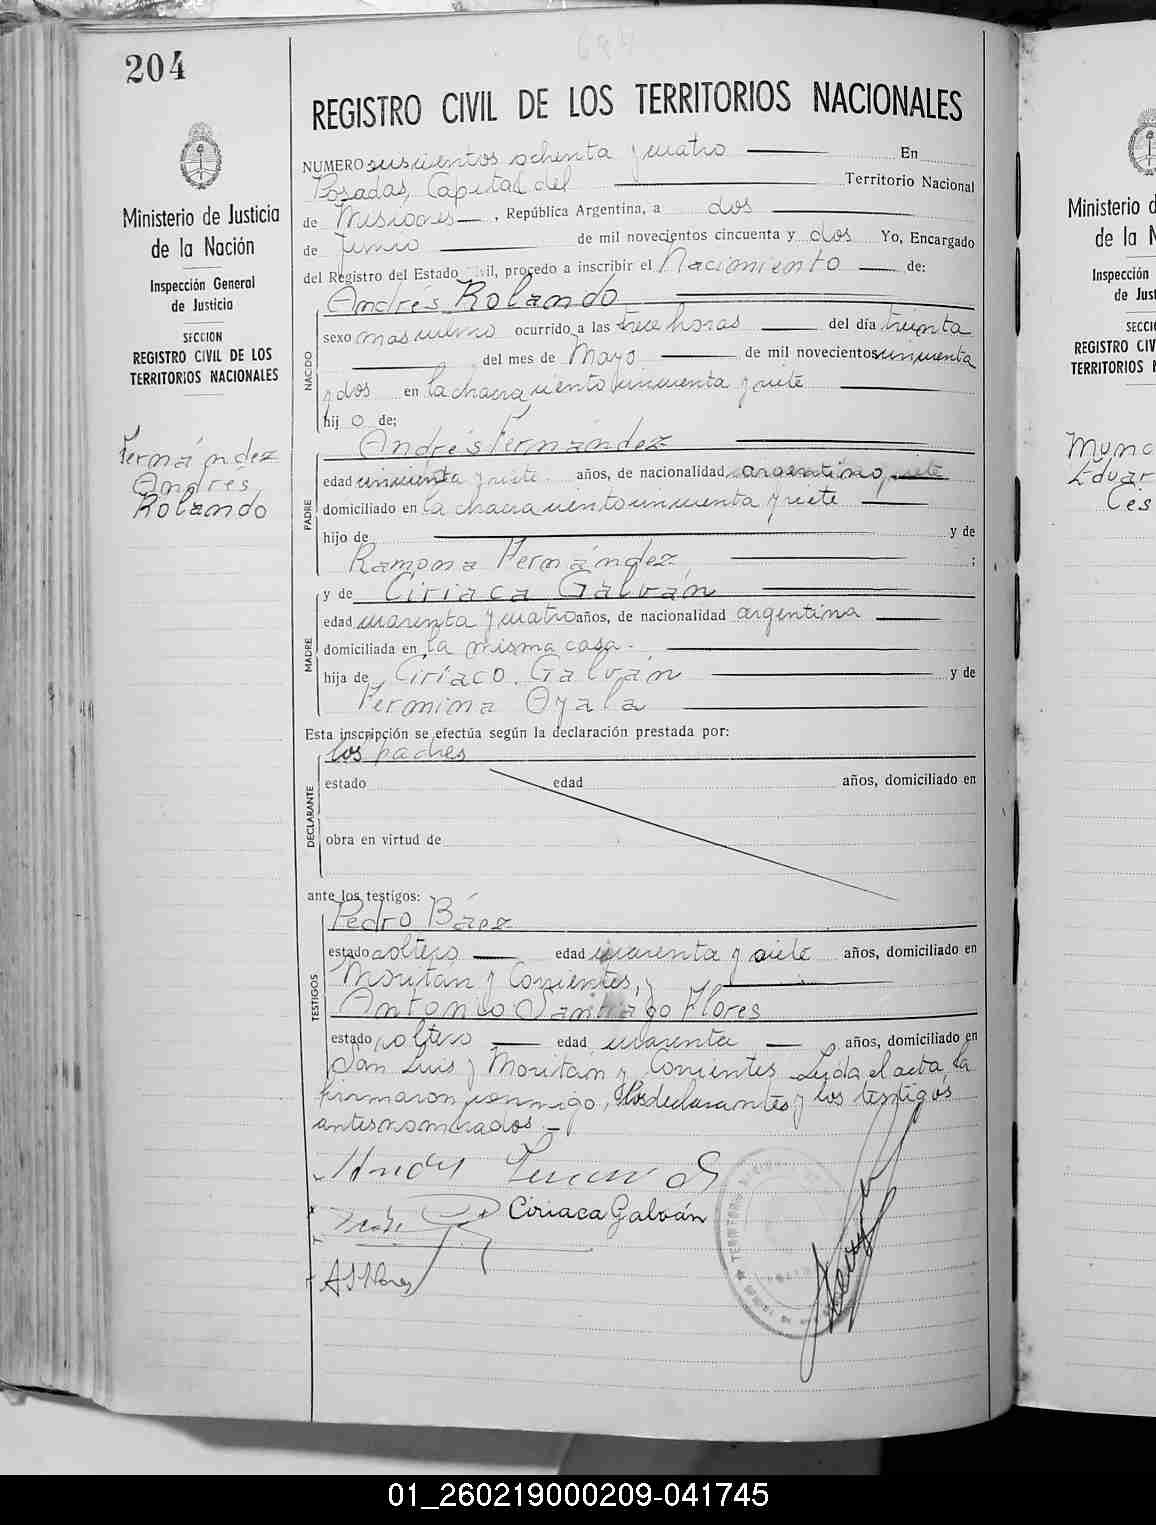 204
Ministerio de Justicia
de la Nación
Inspección General
de Justicia
SECCION
REGISTRO CIVIL DE LOS
TERRITORIOS NACIONALES
Fernández
Andrés
Rolando
684
REGISTRO CIVIL DE LOS TERRITORIOS NACIONALES
NUMERO seiscientos ochenta y cuatro En
Posadas, Capital del Territorio Nacional
de Misiones, República Argentina, a dos
de Junio de mil novecientos cincuenta y dos Yo, Encargado
del Registro del Estado Civil, procedo a inscribir el Nacimiento de:
Andrés Rolando
NACIDO
sexo masculino ocurrido a las trece horas del día treinta
del mes de Mayo de mil novecientos cincuenta
y dos en la chacra ciento cincuenta y siete
hij o de;
Andrés Fernández
PADRE
edad cincuenta y siete años, de nacionalidad argentino, siete
domiciliado en la chacra ciento cincuenta y siete
hijo de y de
Ramona Fernández ;
y de Ciriaca Galván
MADRE
edad cuarenta y cuatro años, de nacionalidad argentina
domiciliada en la misma casa.
hija de Ciríaco Galván y de
Fermina Oyala
Esta inscripción se efectúa según la declaración prestada por:
los padres
DECLARANTE
estado edad años, domiciliado en
obra en virtud de
ante los testigos:
Pedro Báez
TESTIGOS
estado soltero edad cuarenta y siete años, domiciliado en
Moritán y Corrientes, y
Antonio Santiago Flores
estado soltero edad cuarenta años, domiciliado en
San Luis y Moritán y Corrientes. Leída el acta, la
firmaron conmigo, los declarantes y los testigos
antes nombrados.-
Ciriaca Galván
T.
A S Flores
Ministerio d
de la N
Inspección
de Just
SECCI
REGISTRO CIV
TERRITORIOS N
Eduar
Ces
01_260219000209-041745